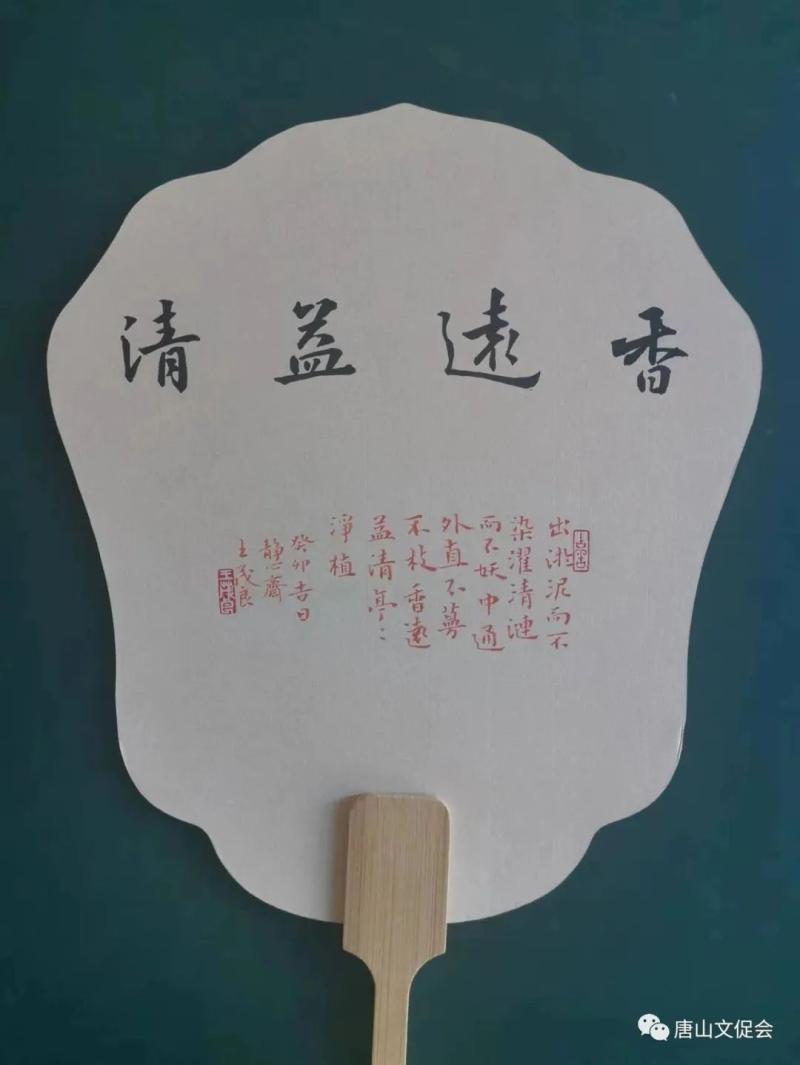 香遠益清
出淤泥而不
染濯清漣
而不妖中通
外直不蔓
不枝香遠
益清亭〻
淨植
癸卯吉日
靜心齋
王茂良
唐山文促会